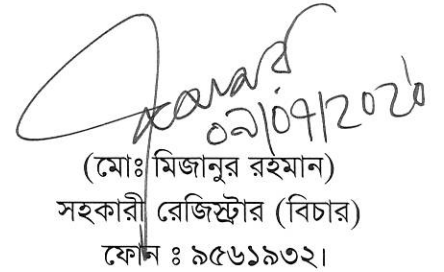 ০৯/০৭/২০২০
(মোঃ মিজানুর রহমান)
সহকারী রেজিস্ট্রার (বিচার)
ফোন ঃ ৯৫৬১৯৩২।